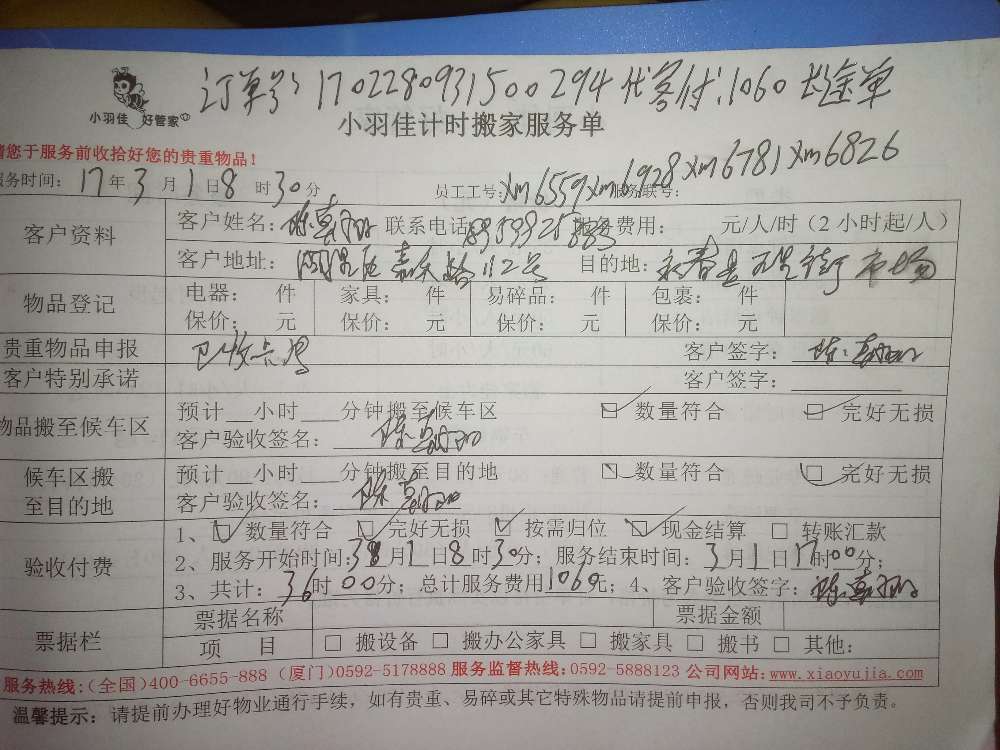 订单号: 1702280931500294 代客付.1060 长途单
小羽佳 好管家
小羽佳计时搬家服务单
请您于服务前收拾好您的贵重物品!
服务时间: 17年3月1日8时30分 员工工号: xm6559 xm6928 xm6781 xm6826 服务联号:
客户资料 客户姓名: 联系电话: 服务费用: 元/人/时(2 小时起/人)
客户地址: 112号 目的地: 永春县 市场
物品登记 电器: 件 家具: 件 易碎品: 件 包裹: 件
保价: 元 保价: 元 保价: 元 保价: 元
贵重物品申报 客户签字:
客户特别承诺 客户签字:
物品搬至候车区 预计__小时__分钟搬至候车区 数量符合 完好无损
客户验收签名:
候车区搬至目的地 预计__小时__分钟搬至目的地 数量符合 完好无损
客户验收签名:
验收付费 1、 数量符合 完好无损 按需归位 现金结算 转账汇款
2、服务开始时间:3月1日8时30分; 服务结束时间: 3月1日17时00分;
3、共计: 36时00分; 总计服务费用1060元; 4、客户验收签字:
票据栏 票据名称 票据金额
项 目 搬设备 搬办公家具 搬家具 搬书 其他:
服务热线:(全国)400-6655-888 (厦门)0592-5178888 服务监督热线:0592-5888123 公司网站:www.xiaoyujia.com
温馨提示: 请提前办理好物业通行手续, 如有贵重、易碎或其它特殊物品请提前申报, 否则我司不予负责。